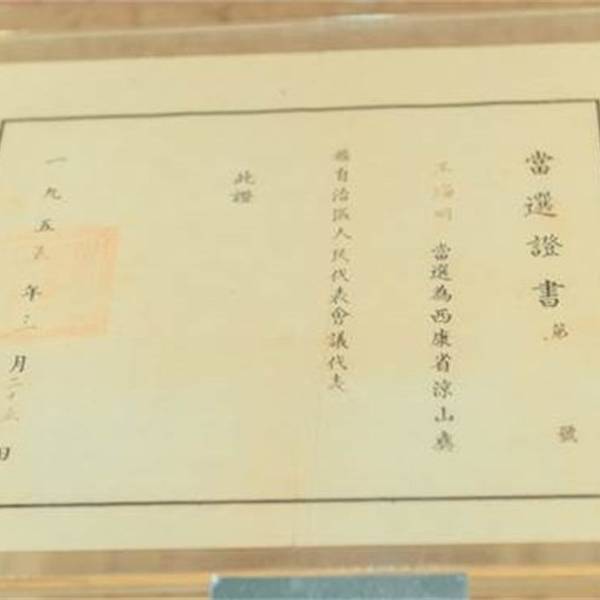 當選證書
第 號
當選為西康省涼山彝
族自治區人民代表會議代表
此證
一九五 年 月二十 日